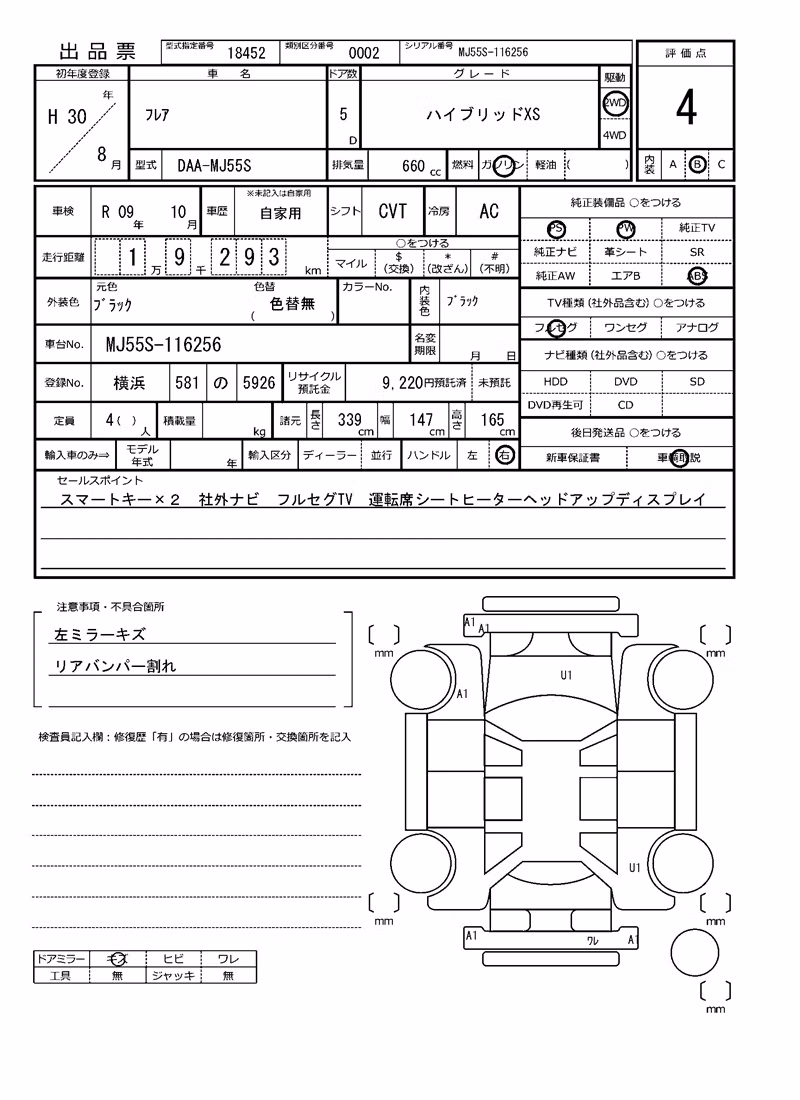 出品票 型式指定番号 18452 類別区分番号 0002 シリアル番号 MJ55S-116256
評価点
初年度登録 車名 ドア数 グレード 駆動
H 30 年 8 月 フレア 5 D ハイブリッドXS 2WD 4WD
4
型式 DAA-MJ55S 排気量 660 cc 燃料 ガソリン 軽油 ( )
内装 A B C
車検 R 09 年 10 月 車歴 ※未記入は自家用 自家用 シフト CVT 冷房 AC
純正装備品 ○をつける
PS PW 純正TV
純正ナビ 革シート SR
純正AW エアB ABS
走行距離 1 万 9 千 2 9 3 km
○をつける
マイル $ (交換) * (改ざん) # (不明)
外装色 元色 ブラック 色替 ( 色替無 ) カラーNo. 内装色 ブラック
TV種類(社外品含む)○をつける
フルセグ ワンセグ アナログ
車台No. MJ55S-116256 名変期限 月 日
ナビ種類(社外品含む)○をつける
HDD DVD SD
DVD再生可 CD
登録No. 横浜 581 の 5926 リサイクル預託金 9,220円預託済 未預託
定員 4( ) 人 積載量 kg 諸元 長さ 339 cm 幅 147 cm 高さ 165 cm
後日発送品 ○をつける
新車保証書 車輌取説
輸入車のみ⇒ モデル年式 年 輸入区分 ディーラー 並行 ハンドル 左 右
セールスポイント
スマートキー×2 社外ナビ フルセグTV 運転席シートヒーターヘッドアップディスプレイ
注意事項・不具合箇所
左ミラーキズ
リアバンパー割れ
検査員記入欄:修復歴「有」の場合は修復箇所・交換箇所を記入
A1 A1
mm mm
U1
A1
U1
mm mm
A1 ワレ A1
mm
ドアミラー キズ ヒビ ワレ
工具 無 ジャッキ 無